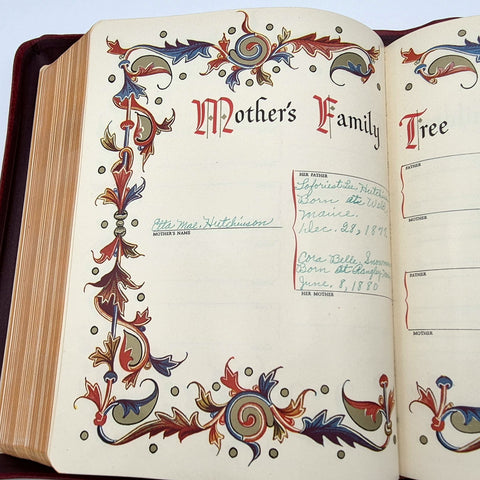 Mother's Family Tree
HER FATHER
Born at
Maine.
Dec. 28, 18
Etta Mae Hutchinson
MOTHER'S NAME
Cora Belle
Born at Rangley
June, 8, 1880
HER MOTHER
FATHER
MOTHER
FATHER
MOTHER